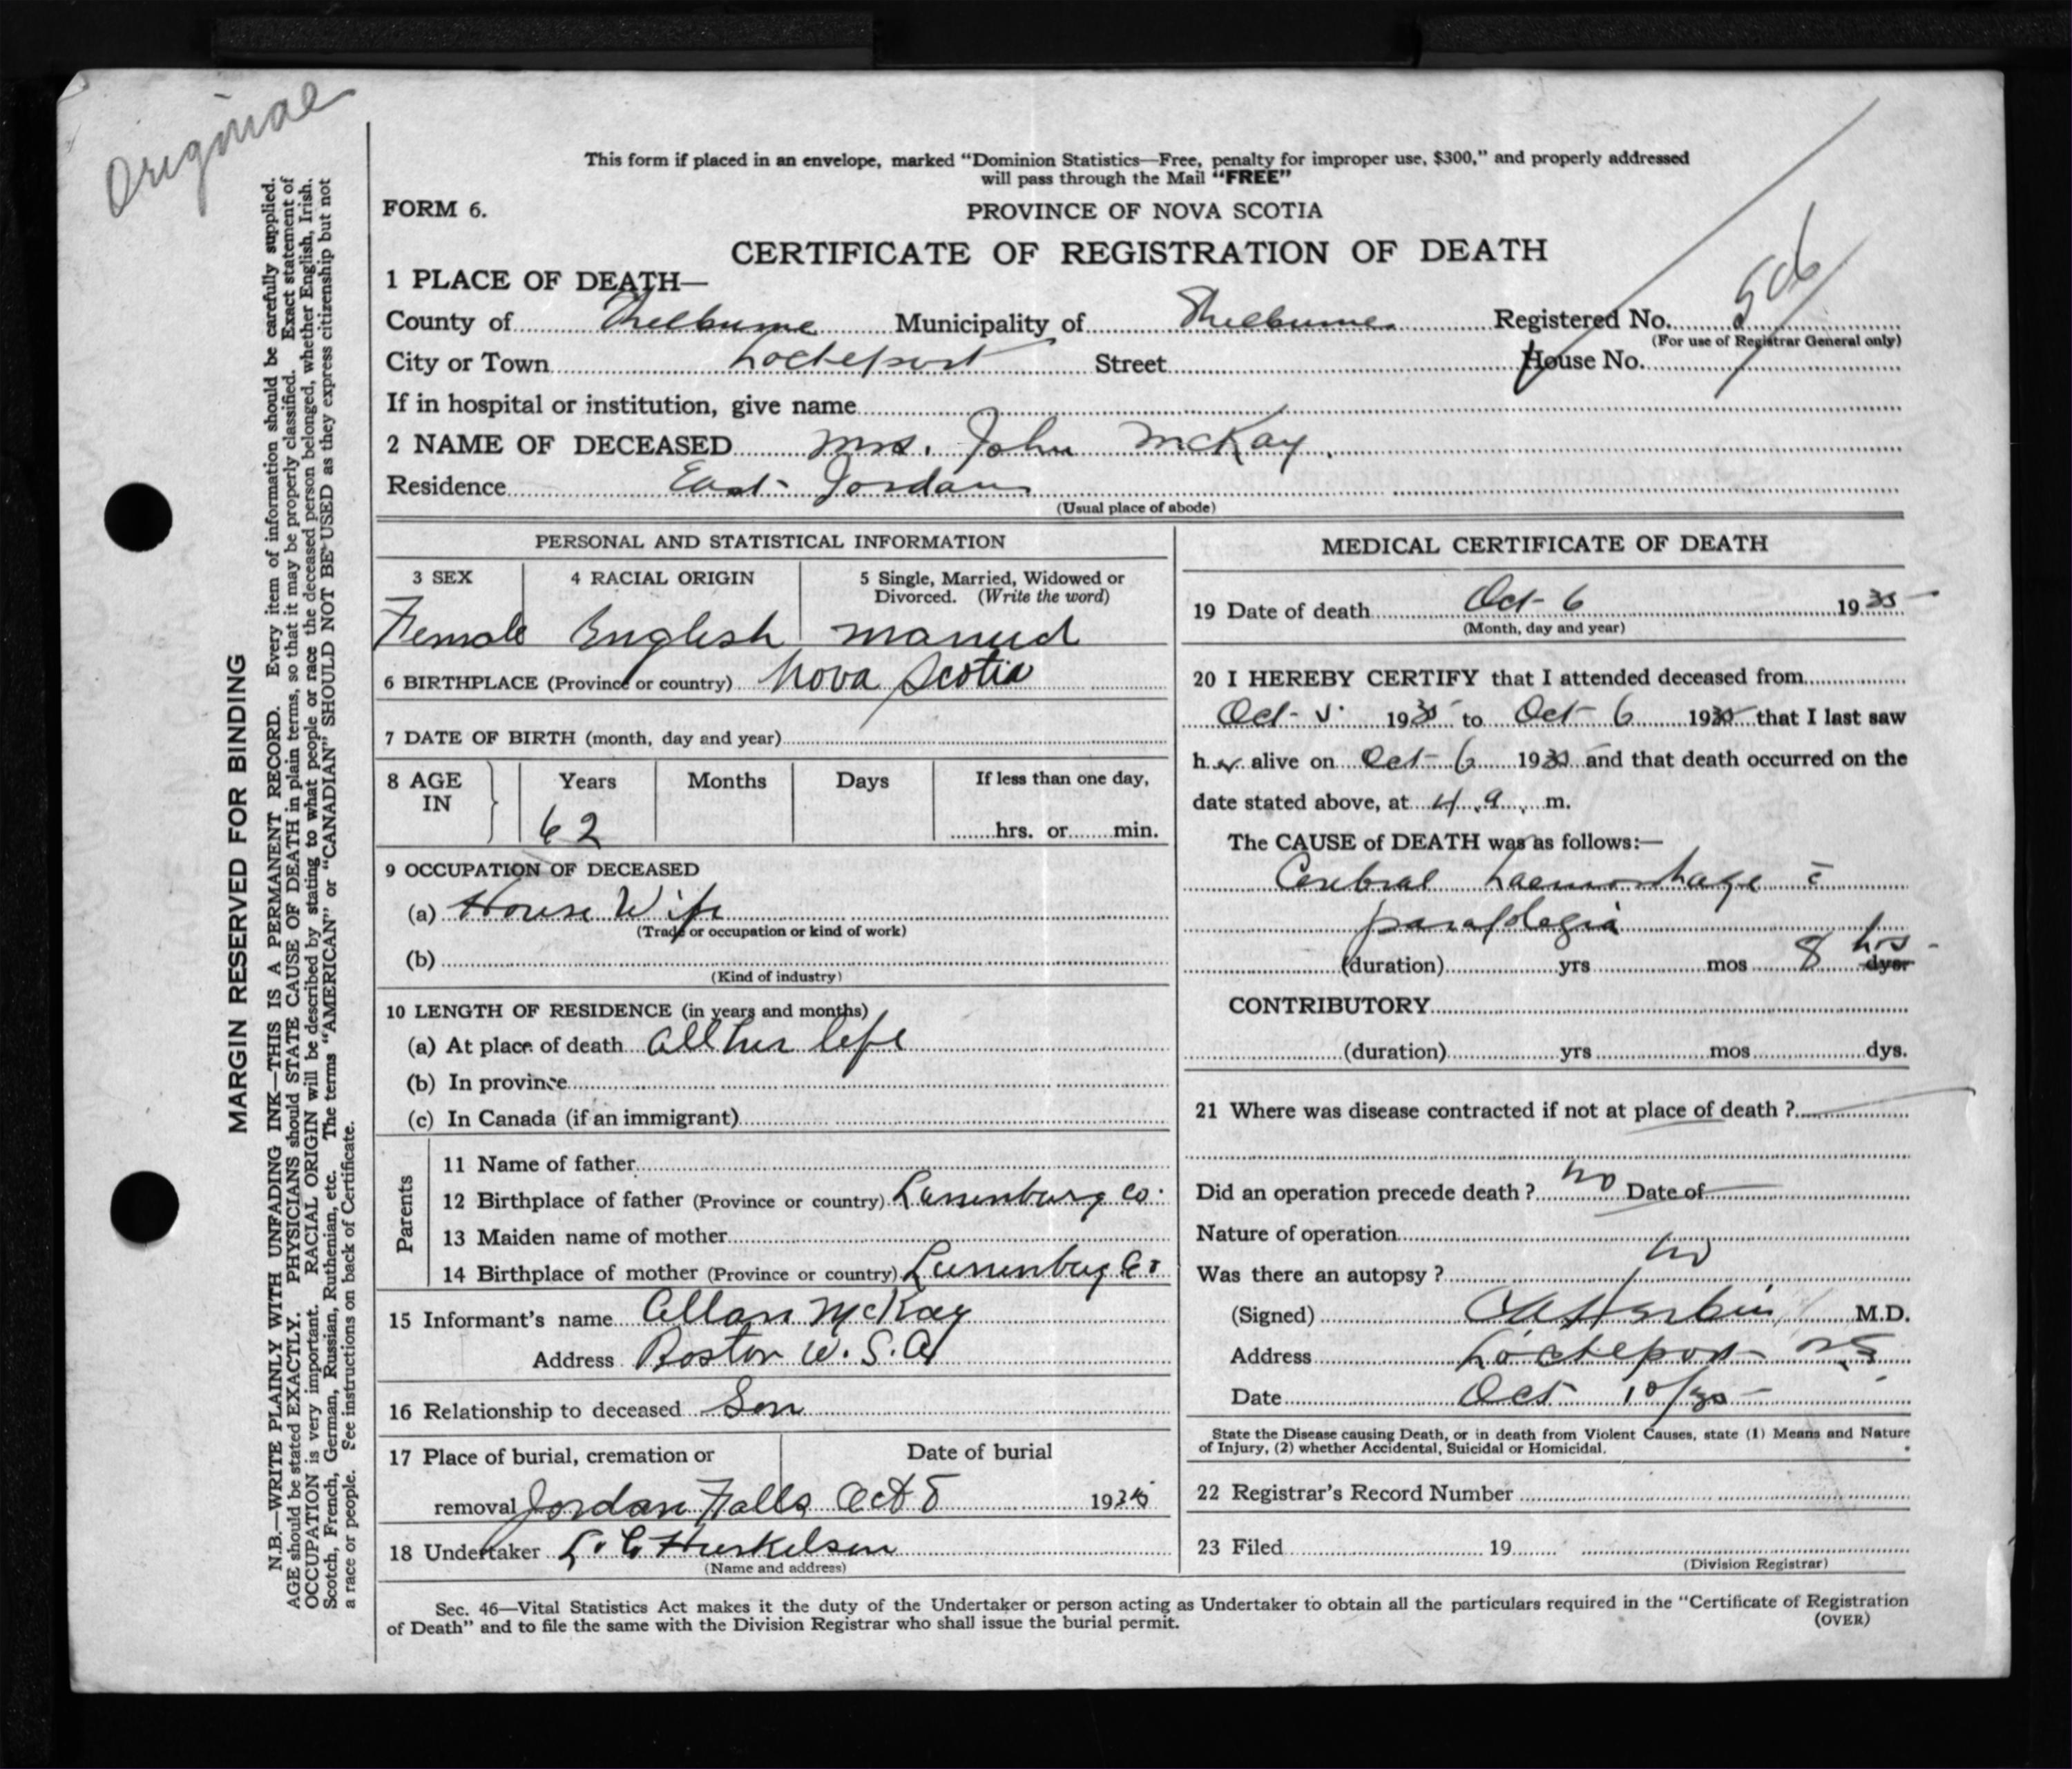 Original
This form if placed in an envelope, marked "Dominion Statistics—Free, penalty for improper use, $300," and properly addressed
will pass through the Mail "FREE"
FORM 6.
PROVINCE OF NOVA SCOTIA
CERTIFICATE OF REGISTRATION OF DEATH
1 PLACE OF DEATH—
County of Shelburne Municipality of Shelburne Registered No. 506
(For use of Registrar General only)
City or Town Lockeport Street House No.
If in hospital or institution, give name
2 NAME OF DECEASED Mrs. John McKay.
Residence East Jordan
(Usual place of abode)
PERSONAL AND STATISTICAL INFORMATION
3 SEX 4 RACIAL ORIGIN 5 Single, Married, Widowed or
Divorced. (Write the word)
Female English married
6 BIRTHPLACE (Province or country) Nova Scotia
7 DATE OF BIRTH (month, day and year)
8 AGE Years Months Days If less than one day,
IN
62 hrs. or min.
9 OCCUPATION OF DECEASED
(a) House Wife
(Trade or occupation or kind of work)
(b)
(Kind of industry)
10 LENGTH OF RESIDENCE (in years and months)
(a) At place of death all her life
(b) In province
(c) In Canada (if an immigrant)
Parents
11 Name of father
12 Birthplace of father (Province or country) Lunenburg Co.
13 Maiden name of mother
14 Birthplace of mother (Province or country) Lunenburg Co
15 Informant's name Allan McKay
Address Boston U.S.A
16 Relationship to deceased Son
17 Place of burial, cremation or Date of burial
removal Jordan Falls Oct 8 19
18 Undertaker L. C. Huskelson
(Name and address)
MEDICAL CERTIFICATE OF DEATH
19 Date of death Oct 6 1935
(Month, day and year)
20 I HEREBY CERTIFY that I attended deceased from
Oct 5 1935 to Oct 6 1935 that I last saw
her alive on Oct 6 1935 and that death occurred on the
date stated above, at 4 a. m.
The CAUSE of DEATH was as follows:—
Cerebral haemorrhage c̄
paraplegia
(duration) yrs mos 8 hrs dys.
CONTRIBUTORY
(duration) yrs mos dys.
21 Where was disease contracted if not at place of death ?
Did an operation precede death ? no Date of
Nature of operation
Was there an autopsy ? no
(Signed) Herbin M.D.
Address Lockeport NS
Date Oct 10/35
State the Disease causing Death, or in death from Violent Causes, state (1) Means and Nature
of Injury, (2) whether Accidental, Suicidal or Homicidal.
22 Registrar's Record Number
23 Filed 19
(Division Registrar)
Sec. 46—Vital Statistics Act makes it the duty of the Undertaker or person acting as Undertaker to obtain all the particulars required in the "Certificate of Registration
of Death" and to file the same with the Division Registrar who shall issue the burial permit.
(OVER)
MARGIN RESERVED FOR BINDING
N.B.—WRITE PLAINLY WITH UNFADING INK—THIS IS A PERMANENT RECORD. Every item of information should be carefully supplied.
AGE should be stated EXACTLY. PHYSICIANS should STATE CAUSE OF DEATH in plain terms, so that it may be properly classified. Exact statement of
OCCUPATION is very important. RACIAL ORIGIN will be described by stating to what people or race the deceased person belonged, whether English, Irish.
Scotch, French, German, Russian, Ruthenian, etc. The terms "AMERICAN" or "CANADIAN" SHOULD NOT BE USED as they express citizenship but not
a race or people. See instructions on back of Certificate.